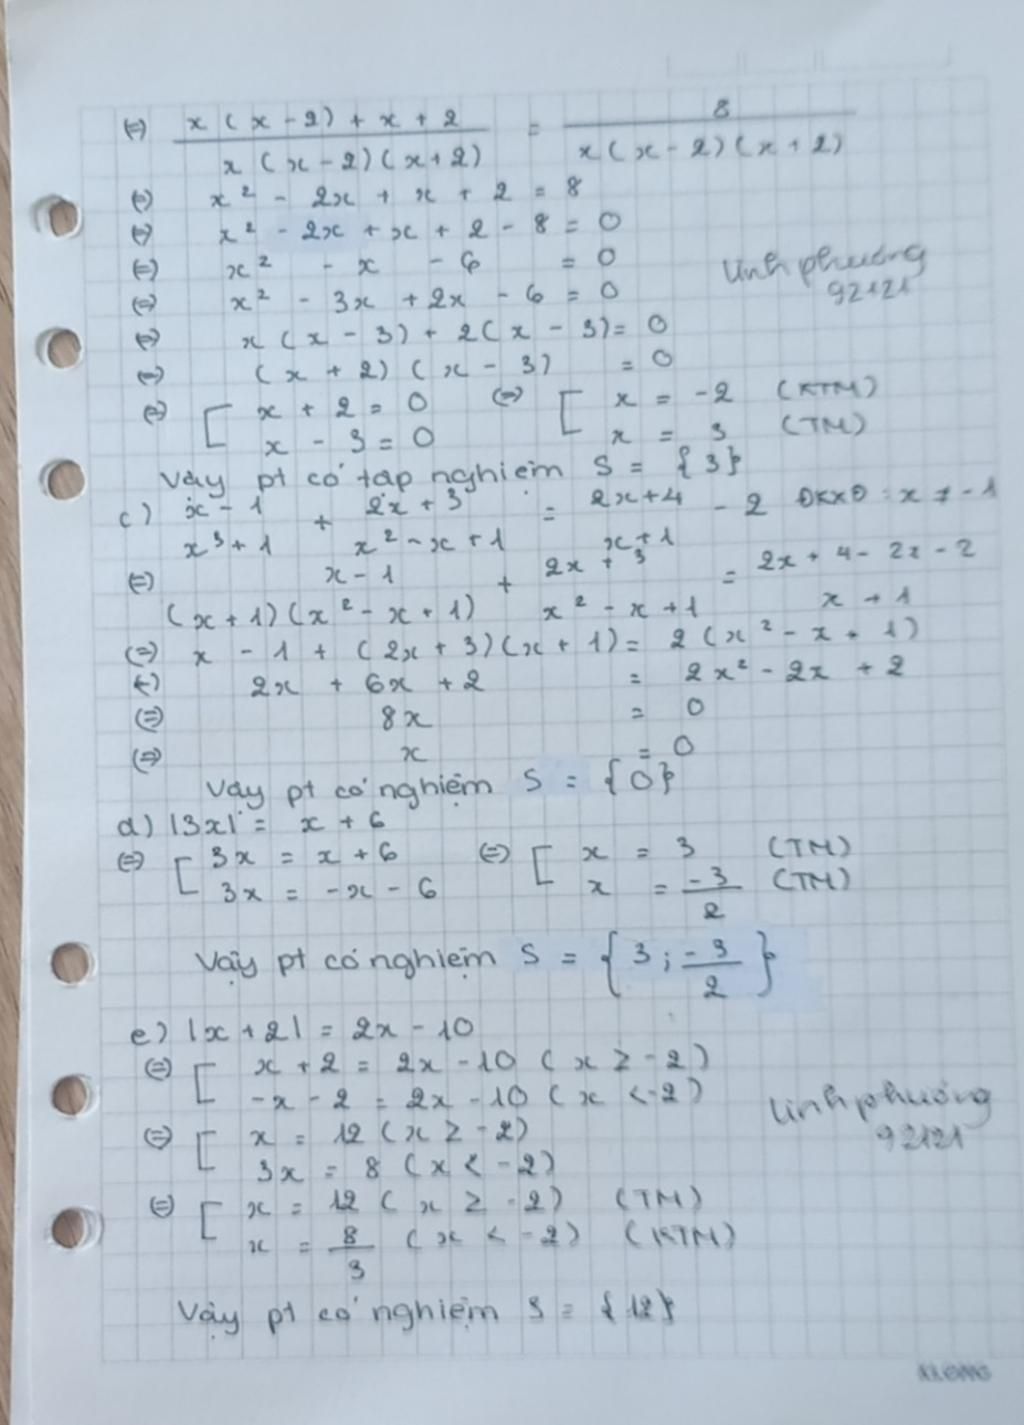 (=) x(x-2)+x+2 / x(x-2)(x+2) = 8 / x(x-2)(x+2)
(=) x² - 2x + x + 2 = 8
(=) x² - 2x + x + 2 - 8 = 0
(=) x² - x - 6 = 0
linhphương
92121
(=) x² - 3x + 2x - 6 = 0
(=) x(x - 3) + 2(x - 3) = 0
(=) (x + 2)(x - 3) = 0
(=) [ x + 2 = 0 (=) [ x = -2 (KTM)
x - 3 = 0 x = 3 (TM)
Vậy pt có tập nghiệm S = {3}
c) x - 1 / x³ + 1 + 2x + 3 / x² - x + 1 = 2x + 4 / x + 1 - 2 ĐKXĐ : x ≠ -1
(=) x - 1 / (x + 1)(x² - x + 1) + 2x + 3 / x² - x + 1 = 2x + 4 - 2x - 2 / x + 1
(=) x - 1 + (2x + 3)(x + 1) = 2(x² - x + 1)
(=) 2x + 6x + 2 = 2x² - 2x + 2
(=) 8x = 0
(=) x = 0
Vậy pt có nghiệm S = {0}
d) |3x| = x + 6
(=) [ 3x = x + 6 (=) [ x = 3 (TM)
3x = -x - 6 x = -3/2 (TM)
Vậy pt có nghiệm S = {3; -3/2}
e) |x + 2| = 2x - 10
(=) [ x + 2 = 2x - 10 (x ≥ -2)
-x - 2 = 2x - 10 (x < -2)
linhphương
92121
(=) [ x = 12 (x ≥ -2)
3x = 8 (x < -2)
(=) [ x = 12 (x ≥ -2) (TM)
x = 8/3 (x < -2) (KTM)
Vậy pt có nghiệm S = {12}
KLONG